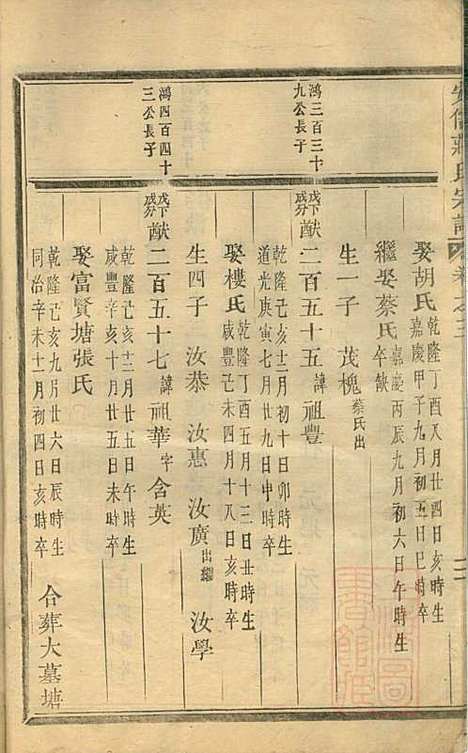 蔣氏宗譜
卷之三
娶胡氏 乾隆丁酉八月廿四日亥時生
嘉慶甲子九月初五日巳時卒
繼娶蔡氏 嘉慶丙辰九月初六日午時生
卒缺
生一子 茂槐 蔡氏出
鴻三百三十
九公長子
戊下
成分
猷二百五十五 諱祖豐
乾隆己亥十二月初十日卯時生
道光庚寅七月廿九日申時卒
娶樓氏 乾隆丁酉五月十三日丑時生
咸豐己未四月十八日亥時卒
生四子 汝恭 汝惠 汝廣 出繼 汝學
鴻四百四十
三公長子
戊下
成分
猷二百五十七 諱祖華 字含英
乾隆己亥十二月廿五日午時生
咸豐辛亥十二月廿五日未時卒
娶富賢塘張氏
乾隆己亥九月廿六日辰時生
同治辛未十一月初四日亥時卒
合葬大墓塘